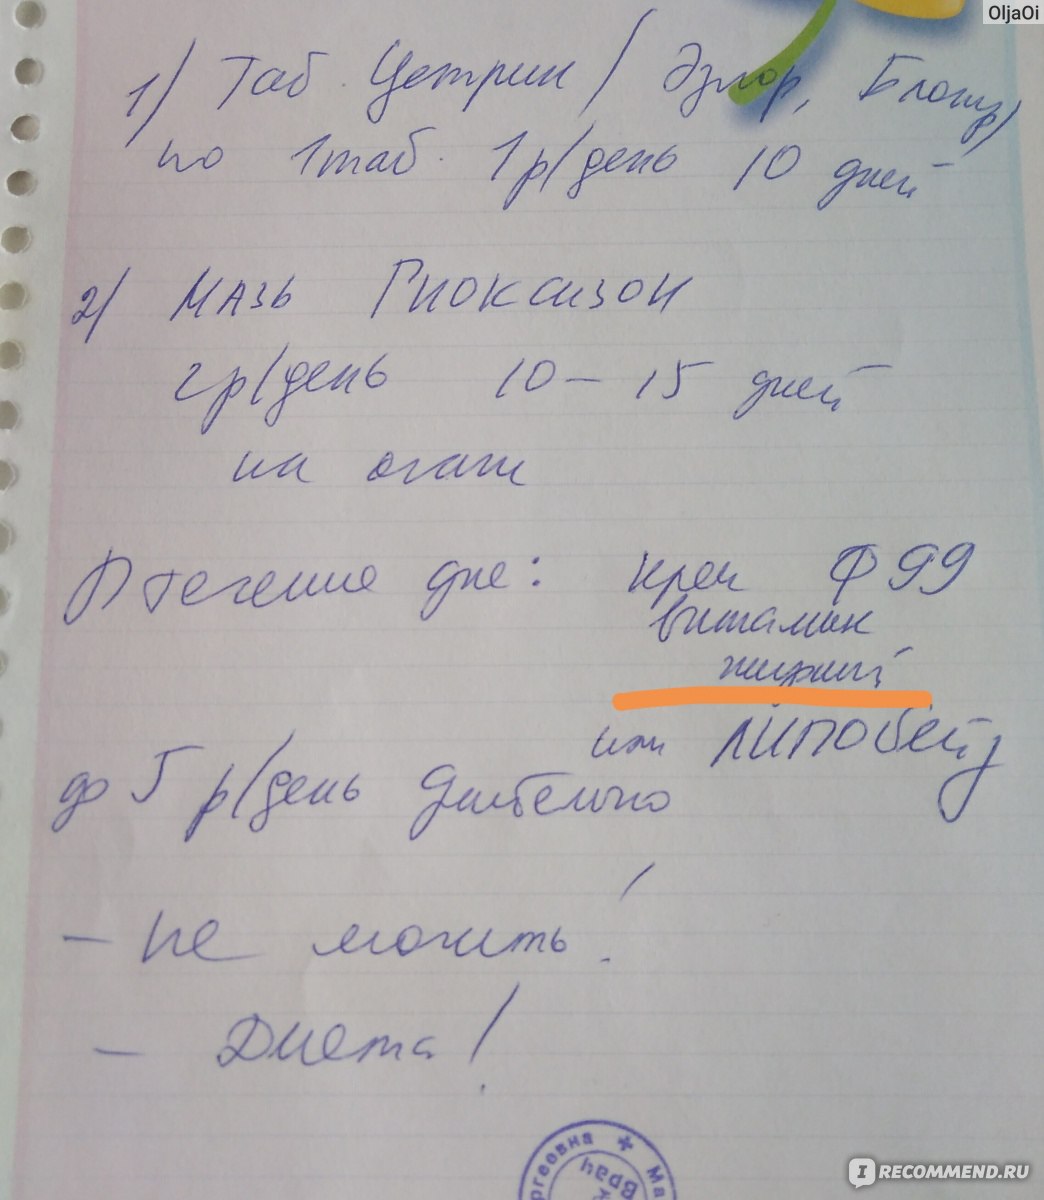 OljaOi
1) Таб. Цетрин / Эзлор, Блогир)
по 1таб. 1р/день 10 дней
2) Мазь Гиоксизон
2р/день 10 – 15 дней
на очаги
В течение дня: крем Ф 99
витамин
жирный
или ЛИПОбейз
до 5 р/день длительно
– не мочить!
– Диета!
ргеевна * Ма
Врач
IRECOMMEND.RU